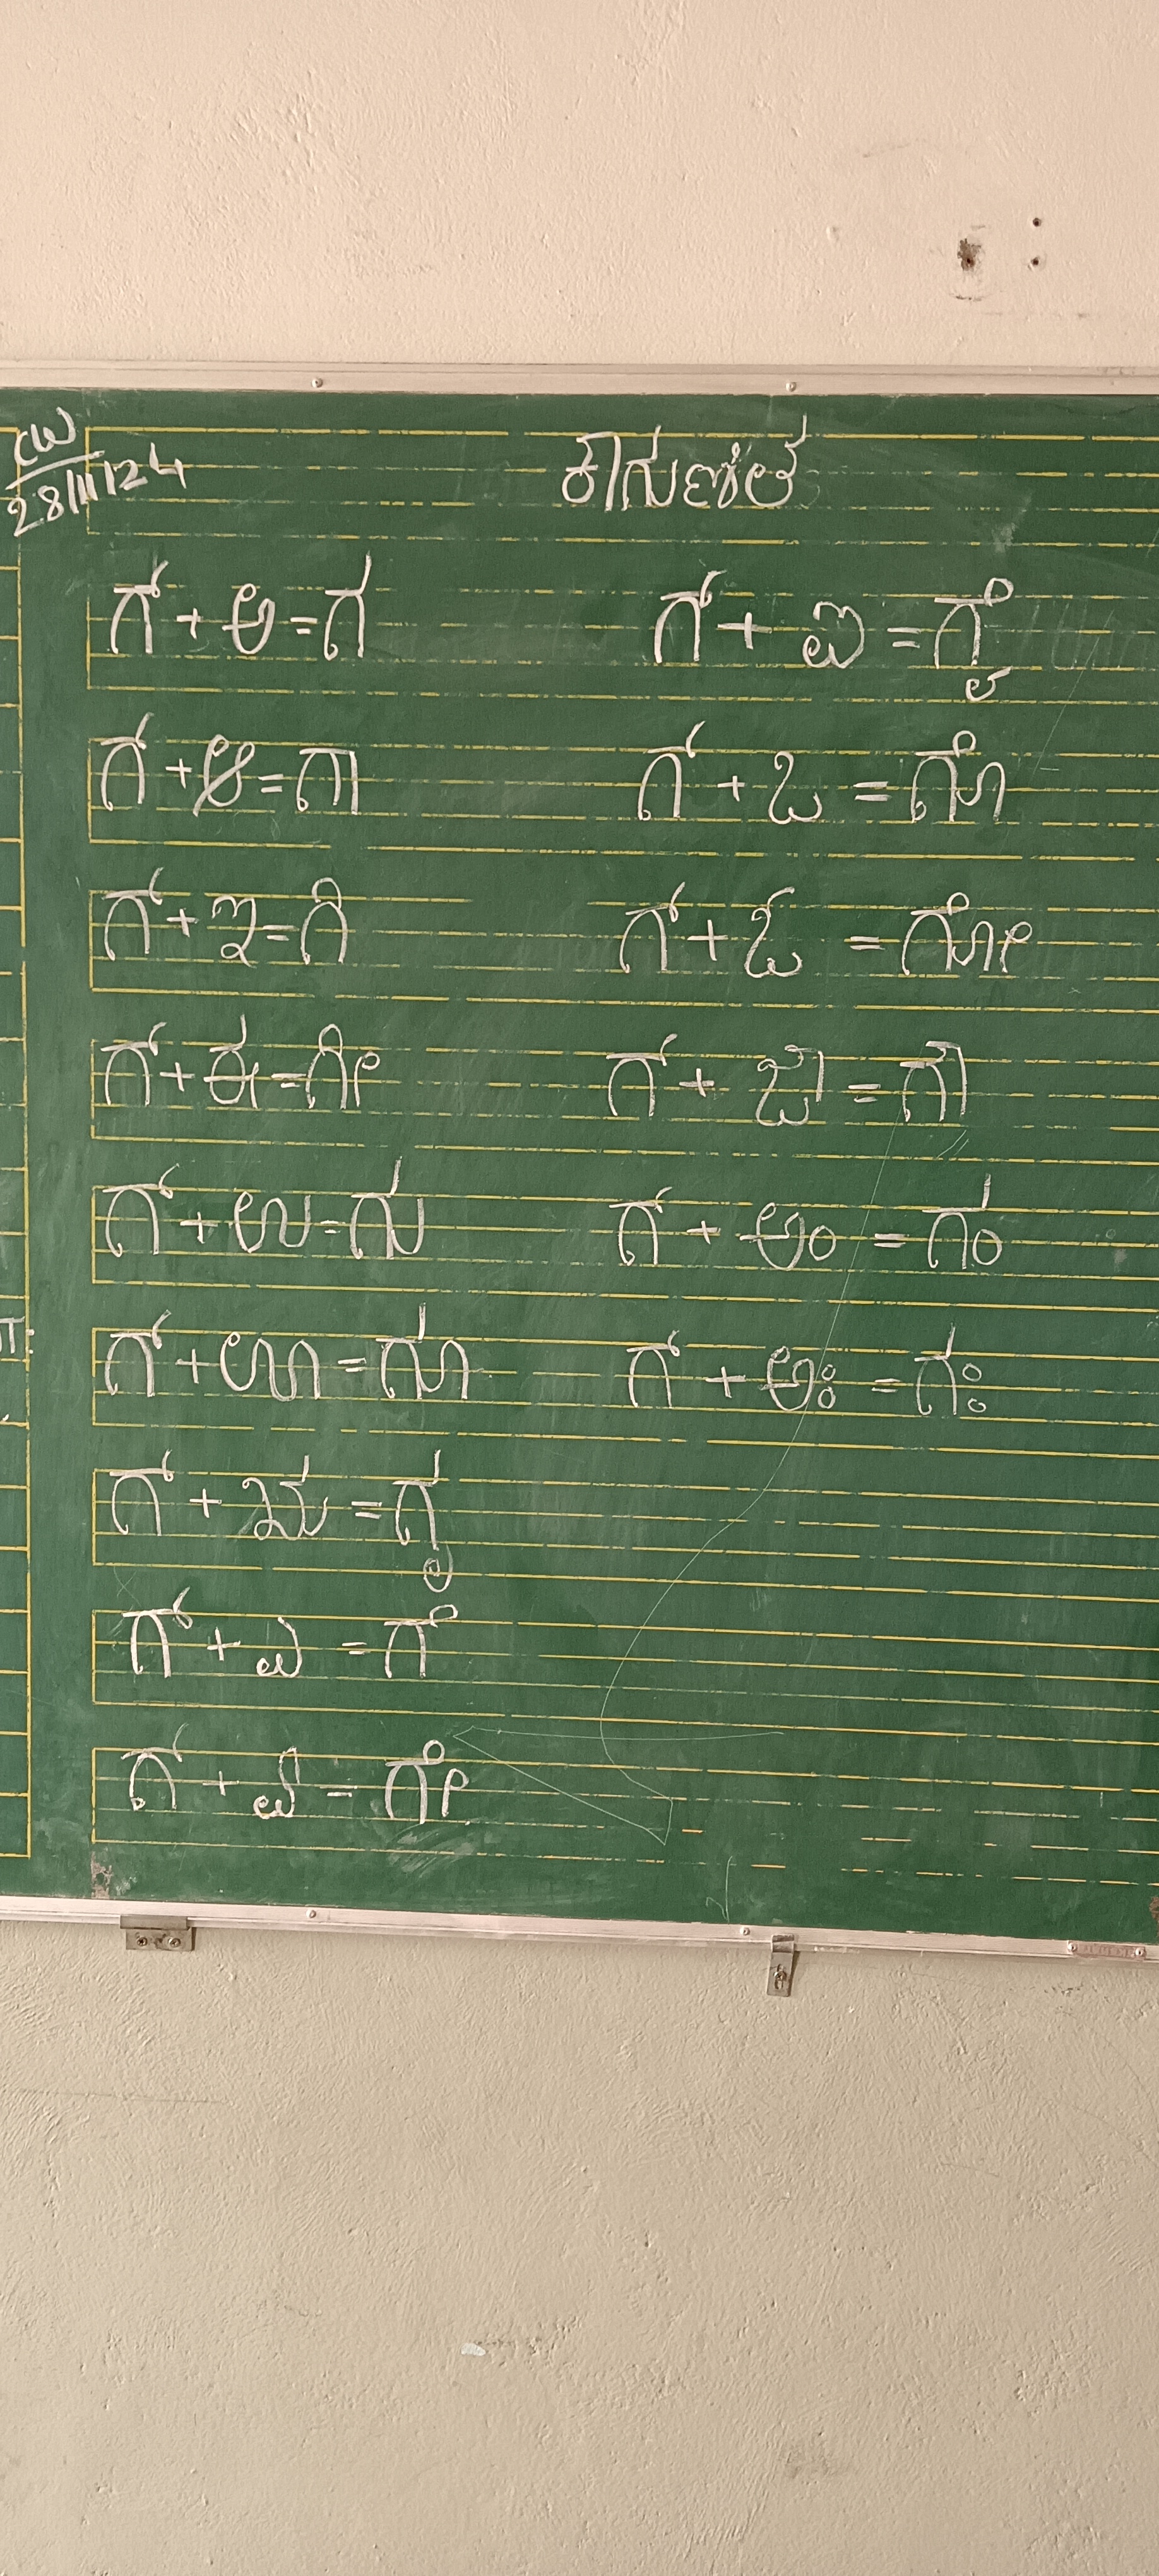 CW
28/11/24
ಕಾಗುಣಿತ
ಗ್ + ಅ = ಗ
ಗ್ + ಆ = ಗಾ
ಗ್ + ಇ = ಗಿ
ಗ್ + ಈ = ಗೀ
ಗ್ + ಉ = ಗು
ಗ್ + ಊ = ಗೂ
ಗ್ + ಋ = ಗೃ
ಗ್ + ಎ = ಗೆ
ಗ್ + ಏ = ಗೇ
ಗ್ + ಐ = ಗೈ
ಗ್ + ಒ = ಗೊ
ಗ್ + ಓ = ಗೋ
ಗ್ + ಔ = ಗೌ
ಗ್ + ಅಂ = ಗಂ
ಗ್ + ಅಃ = ಗಃ